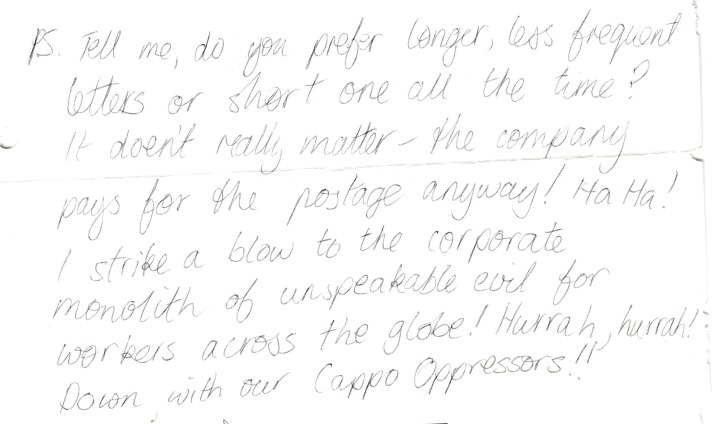 PS. Tell me, do you prefer longer, less frequent
letters or short one all the time?
It doen't really matter - the company
pays for the postage anyway! Ha Ha!
I strike a blow to the corporate
monolith of unspeakable evil for
workers across the globe! Hurrah, hurrah!
Down with our Cappo Oppressors!!